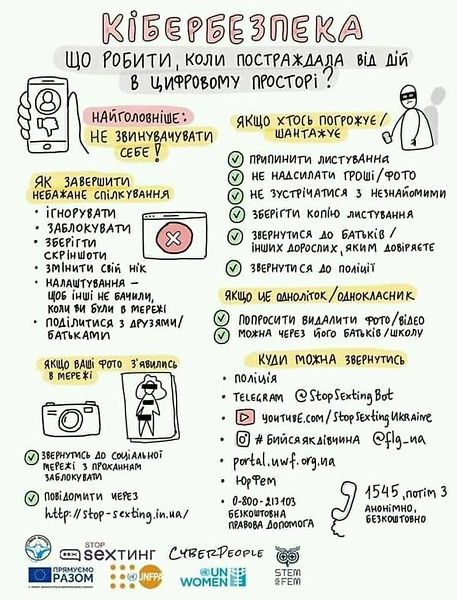 КІБЕРБЕЗПЕКА
ЩО РОБИТИ, КОЛИ ПОСТРАЖДАЛА ВІД ДІЙ
В ЦИФРОВОМУ ПРОСТОРІ?
НАЙГОЛОВНІШЕ:
НЕ ЗВИНУВАЧУВАТИ
СЕБЕ!
ЯК ЗАВЕРШИТИ
НЕБАЖАНЕ СПІЛКУВАННЯ
• ІГНОРУВАТИ
• ЗАБЛОКУВАТИ
• ЗБЕРІГТИ
СКРІНШОТИ
• ЗМІНИТИ СВІЙ НІК
• НАЛАШТУВАННЯ –
ЩОБ ІНШІ НЕ БАЧИЛИ,
КОЛИ ВИ БУЛИ В МЕРЕЖІ
• ПОДІЛИТИСЯ З ДРУЗЯМИ/
БАТЬКАМИ
ЯКЩО ВАШІ ФОТО З'ЯВИЛИСЬ
В МЕРЕЖІ
ЗВЕРНУТИСЬ ДО СОЦІАЛЬНОЇ
МЕРЕЖІ З ПРОХАННЯМ
ЗАБЛОКУВАТИ
ПОВІДОМИТИ ЧЕРЕЗ
http://stop-sexting.in.ua/
ЯКЩО ХТОСЬ ПОГРОЖУЄ/
ШАНТАЖУЄ
ПРИПИНИТИ ЛИСТУВАННЯ
НЕ НАДСИЛАТИ ГРОШІ/ФОТО
НЕ ЗУСТРІЧАТИСЯ З НЕЗНАЙОМИМИ
ЗБЕРІГТИ КОПІЮ ЛИСТУВАННЯ
ЗВЕРНУТИСЯ ДО БАТЬКІВ/
ІНШИХ ДОРОСЛИХ, ЯКИМ ДОВІРЯЄТЕ
ЗВЕРНУТИСЯ ДО ПОЛІЦІЇ
ЯКЩО ЦЕ ОДНОЛІТОК/ОДНОКЛАСНИК
ПОПРОСИТИ ВИДАЛИТИ ФОТО/ВІДЕО
МОЖНА ЧЕРЕЗ ЙОГО БАТЬКІВ/ШКОЛУ
КУДИ МОЖНА ЗВЕРНУТИСЬ
• ПОЛІЦІЯ
• TELEGRAM @StopSextingBot
• YOUTUBE.com/StopSextingUkraine
• #БИЙСЯЯКДІВЧИНА @flg_ua
• portal.uwf.org.ua
• ЮрФем
• 0-800-213103
БЕЗКОШТОВНА
ПРАВОВА ДОПОМОГА
1545, потім 3
АНОНІМНО,
БЕЗКОШТОВНО
STOP
SEXТИНГ
CYBERPEOPLE
STEM
is FEM
ПРЯМУЄМО
РАЗОМ
UNFPA
UN
WOMEN